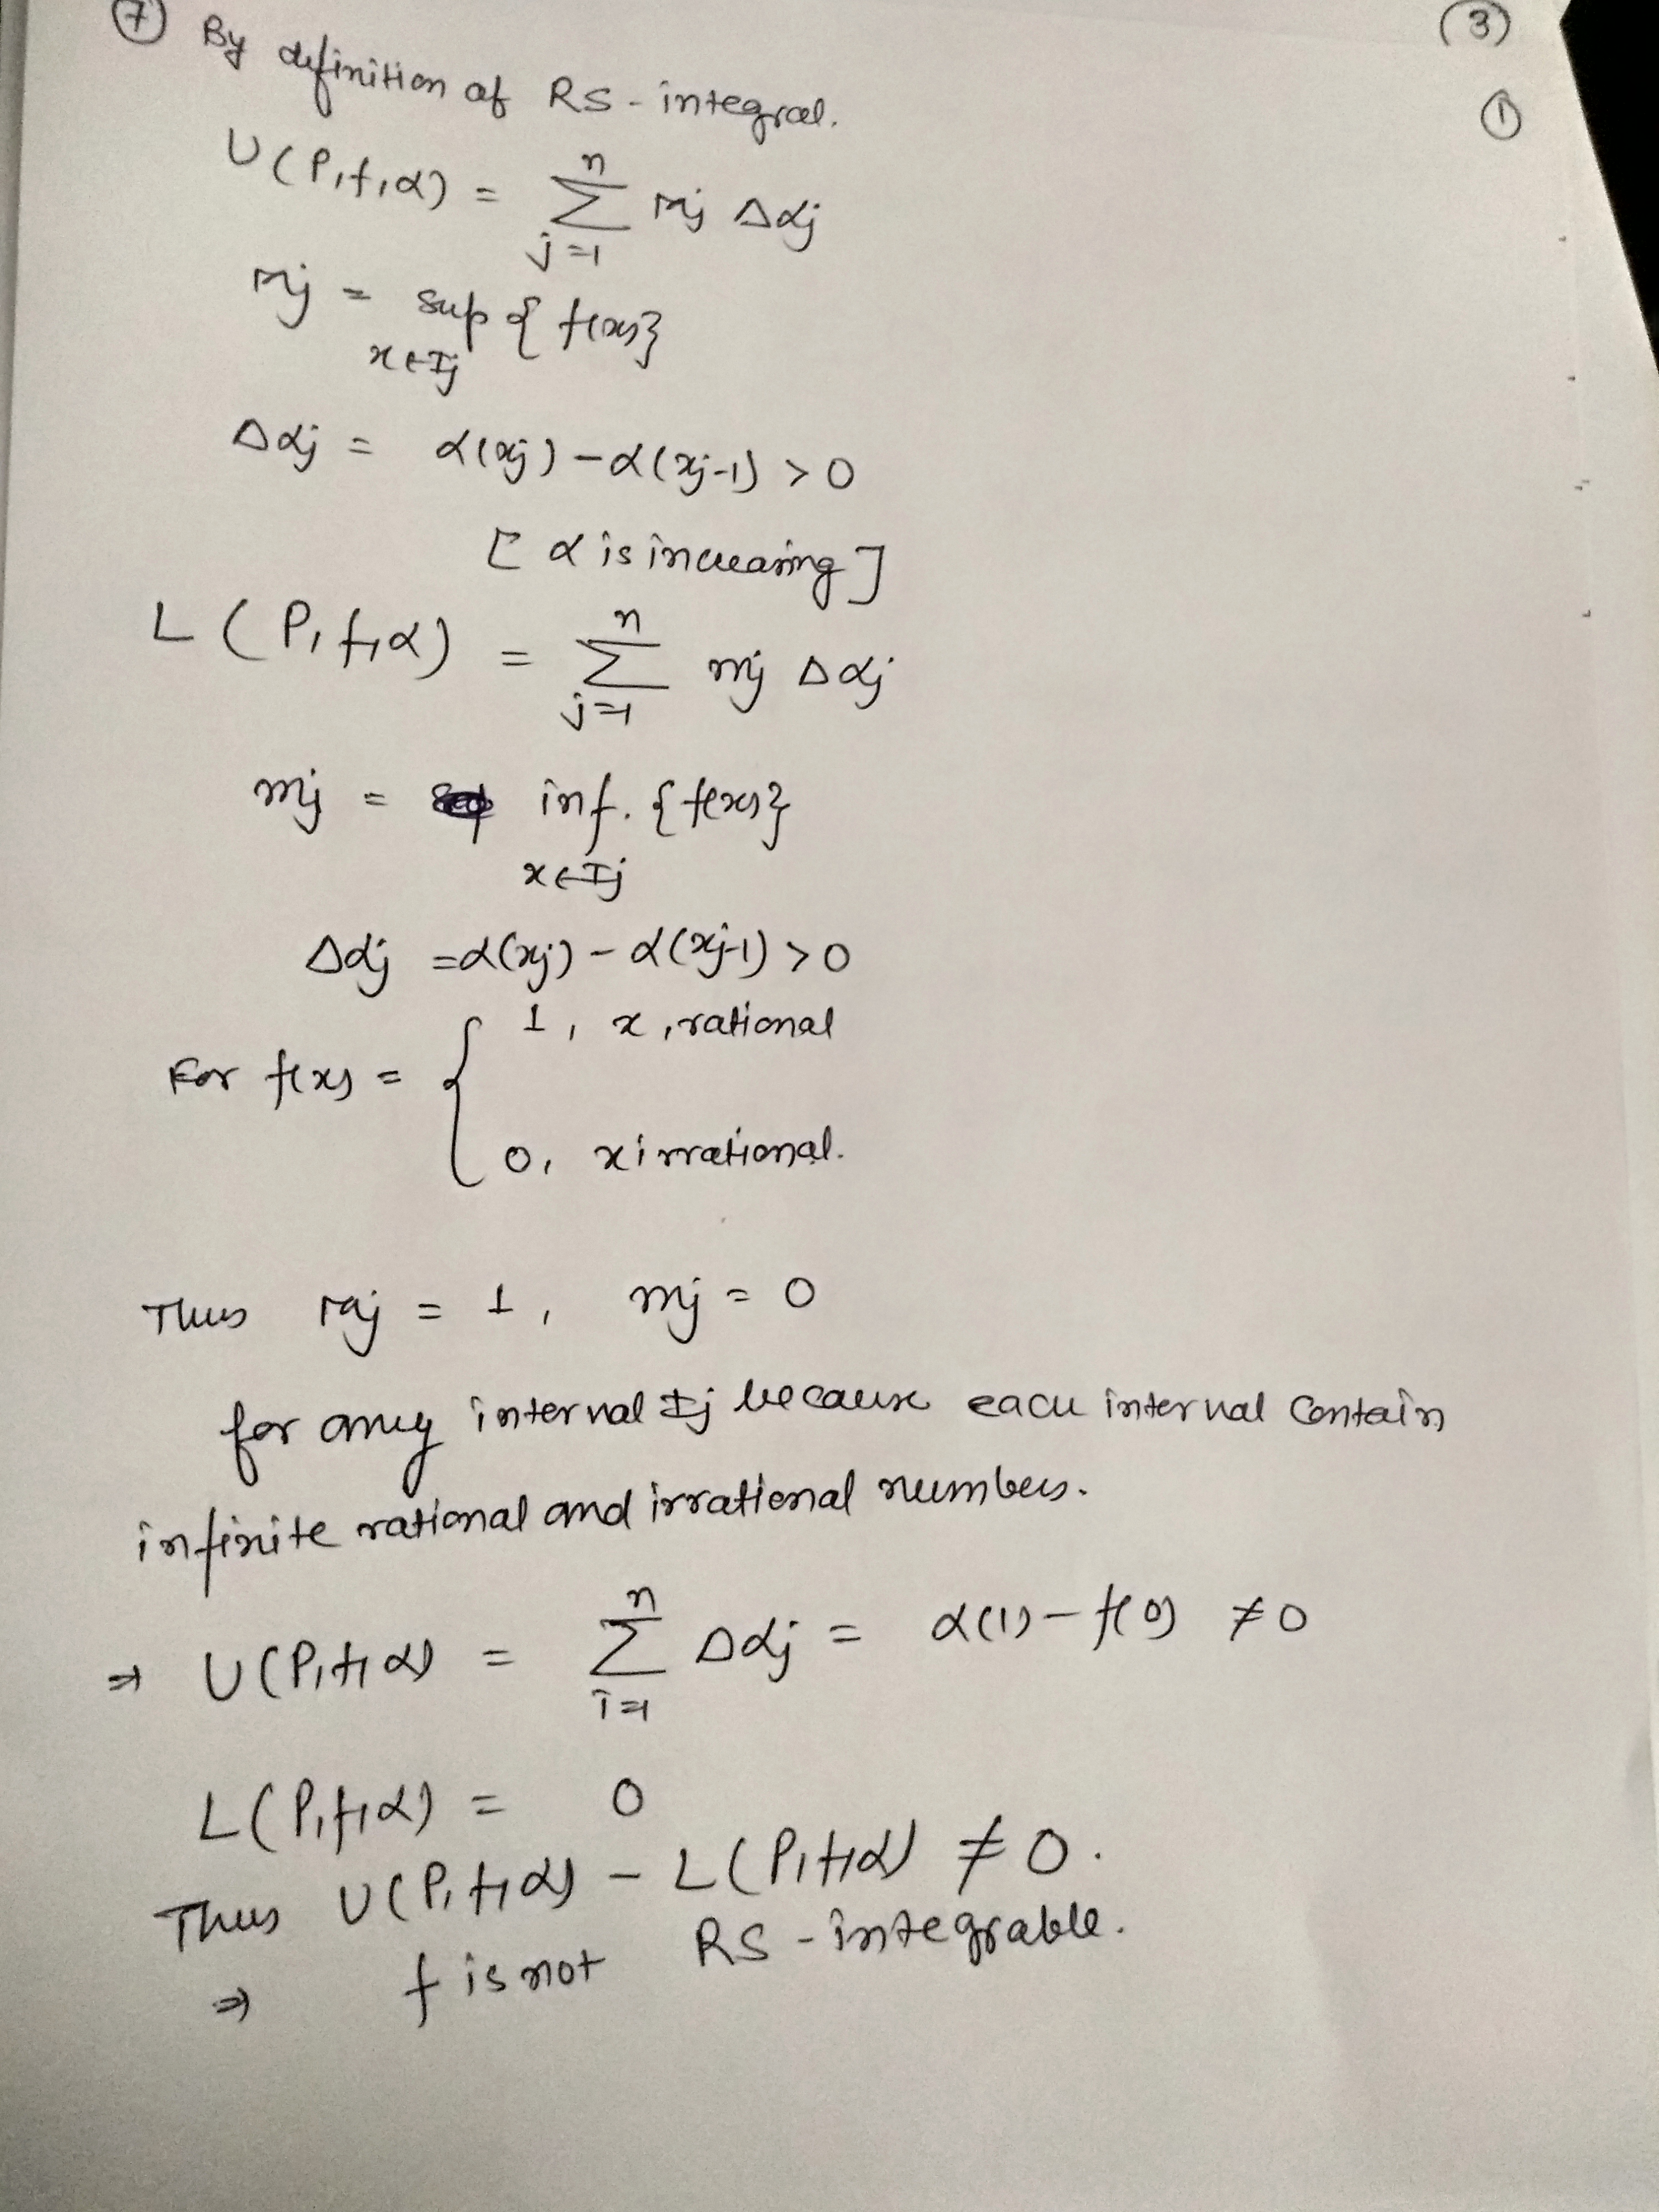 ⑦ By definition of RS-integral.
(3)
①
U(P,f,α) = n Σ j=1 Mj Δαj
Mj = sup {f(x)}
x∈Ij
Δαj = α(xj) - α(xj-1) > 0
[α is increasing]
L(P,f,α) = n Σ j=1 mj Δαj
mj = inf. {f(x)}
x∈Ij
Δαj = α(xj) - α(xj-1) > 0
1, x, rational
For f(x) = {
0, x irrational.
Thus Mj = 1, mj = 0
for any interval Ij because each interval contain
infinite rational and irrational numbers.
⇒ U(P,f,α) = n Σ i=1 Δαj = α(1) - f(0) ≠ 0
L(P,f,α) = 0
Thus U(P,f,α) - L(P,f,α) ≠ 0.
⇒ f is not RS-integrable.